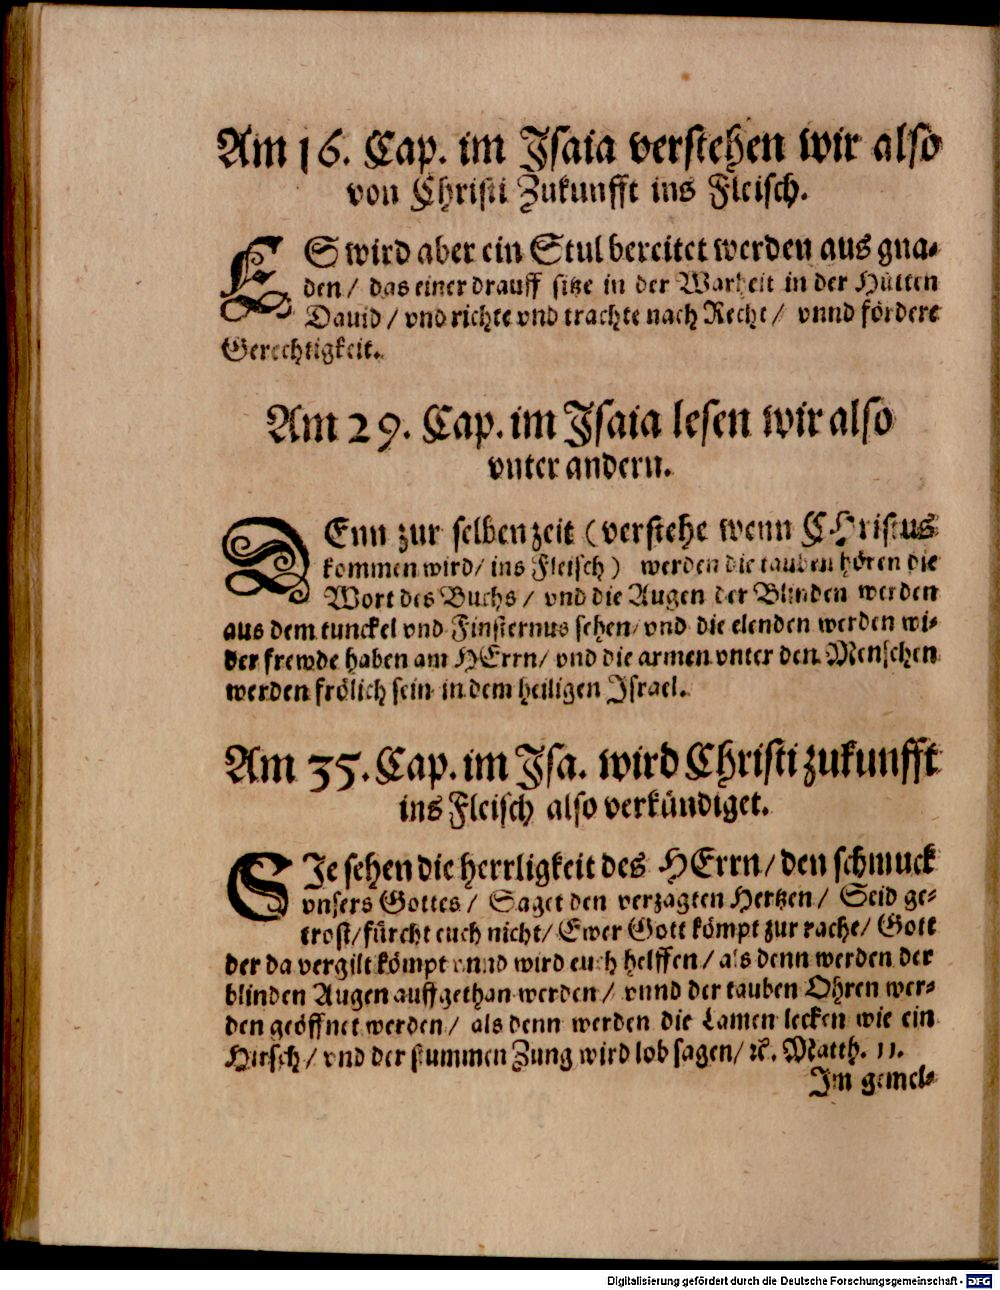 Am 16. Cap. im Jsaia verstehen wir also
von Christi Zukunfft ins Fleisch.
ES wird aber ein Stul bereitet werden aus gna-
den / das einer drauff sitze in der Warheit in der Hütten
Dauid / vnd richte vnd trachte nach Recht / vnnd fördere
Gerechtigkeit.
Am 29. Cap. im Jsaia lesen wir also
vnter andern.
DEnn zur selben zeit (verstehe wenn CHristus
kommen wird / ins Fleisch) werden die tauben hören die
Wort des Buchs / vnd die Augen der Blinden werden
aus dem tunckel vnd Finsternus sehen / vnd die elenden werden wi-
der frewde haben am HErrn / vnd die armen vnter den Menschen
werden frölich sein in dem heiligen Jsrael.
Am 35. Cap. im Jsa. wird Christi zukunfft
ins Fleisch also verkündiget.
SJe sehen die herrligkeit des HErrn / den schmuck
vnsers Gottes / Saget den verzagten Hertzen / Seid ge-
trost / fürcht euch nicht / Ewer Gott kömpt zur rache / Gott
der da vergilt kömpt vnnd wird euch helffen / als denn werden der
blinden Augen auffgethan werden / vnnd der tauben Ohren wer-
den geöffnet werden / als denn werden die Lamen lecken wie ein
Hirsch / vnd der stummen Zung wird lob sagen / ꝛc. Matth. 11.
Jm gemel-
Digitalisierung gefördert durch die Deutsche Forschungsgemeinschaft - DFG